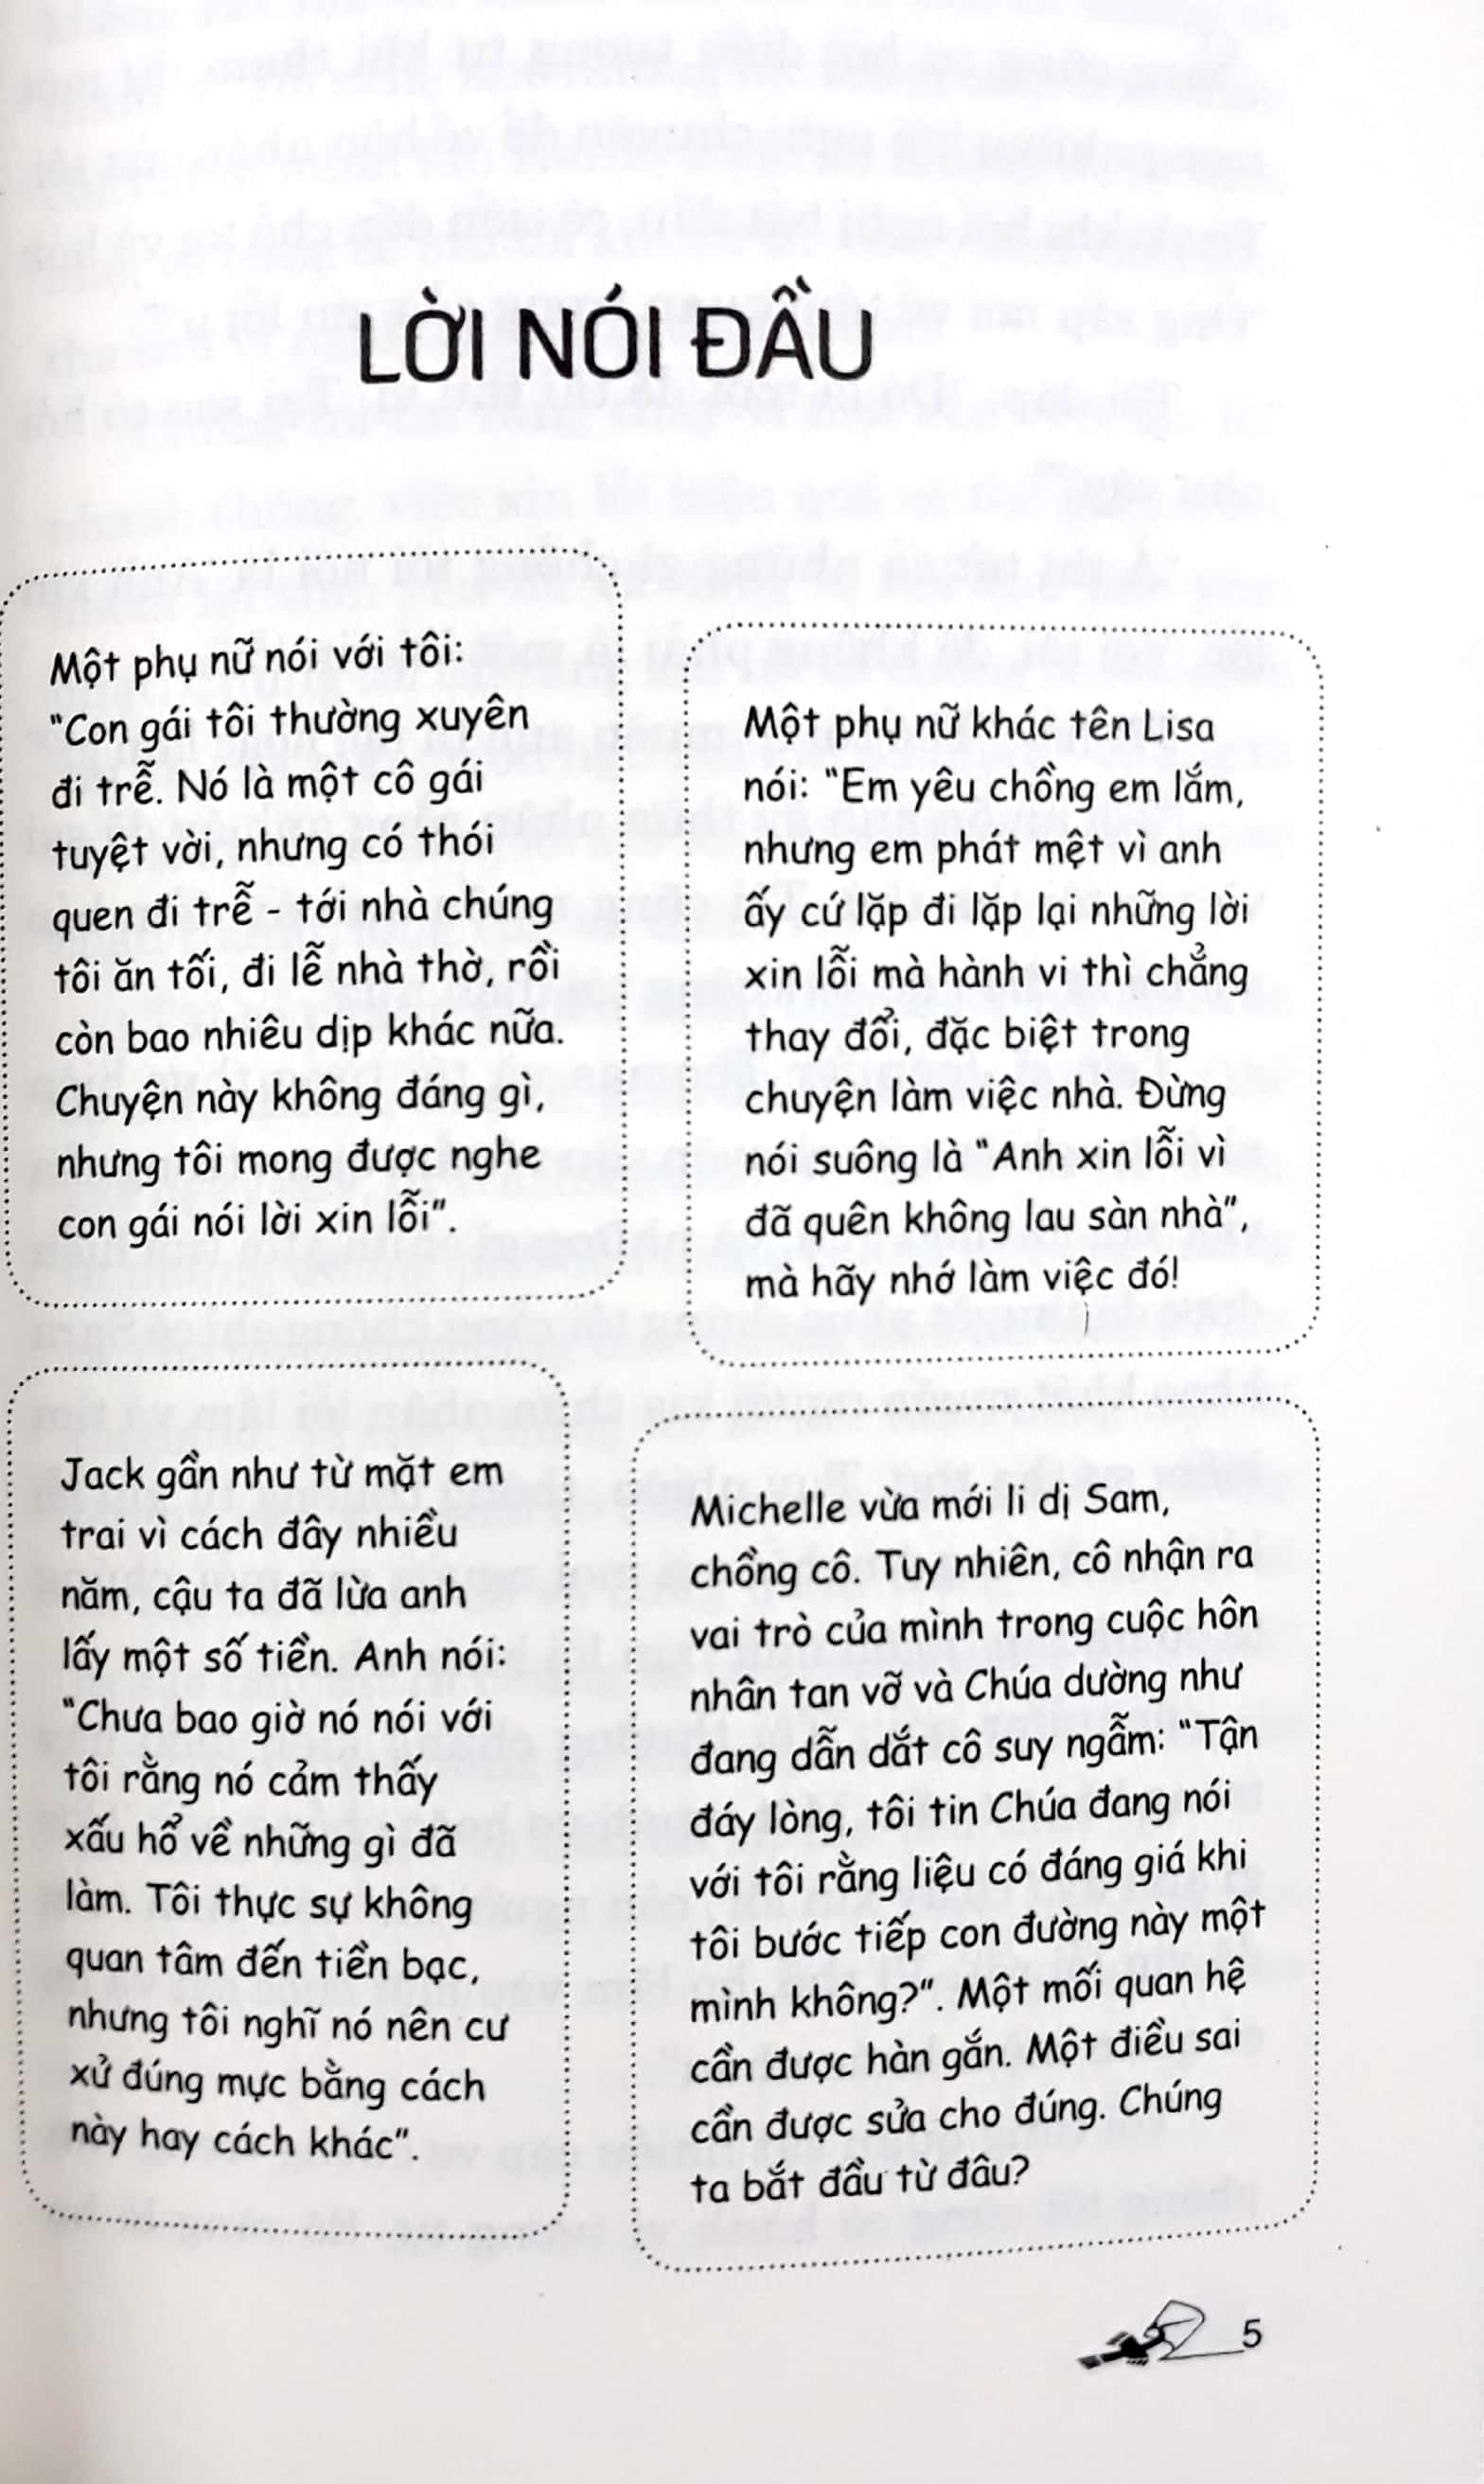 LỜI NÓI ĐẦU
Một phụ nữ nói với tôi:
"Con gái tôi thường xuyên
đi trễ. Nó là một cô gái
tuyệt vời, nhưng có thói
quen đi trễ - tới nhà chúng
tôi ăn tối, đi lễ nhà thờ, rồi
còn bao nhiêu dịp khác nữa.
Chuyện này không đáng gì,
nhưng tôi mong được nghe
con gái nói lời xin lỗi".
Một phụ nữ khác tên Lisa
nói: "Em yêu chồng em lắm,
nhưng em phát mệt vì anh
ấy cứ lặp đi lặp lại những lời
xin lỗi mà hành vi thì chẳng
thay đổi, đặc biệt trong
chuyện làm việc nhà. Đừng
nói suông là "Anh xin lỗi vì
đã quên không lau sàn nhà",
mà hãy nhớ làm việc đó!
Jack gần như từ mặt em
trai vì cách đây nhiều
năm, cậu ta đã lừa anh
lấy một số tiền. Anh nói:
"Chưa bao giờ nó nói với
tôi rằng nó cảm thấy
xấu hổ về những gì đã
làm. Tôi thực sự không
quan tâm đến tiền bạc,
nhưng tôi nghĩ nó nên cư
xử đúng mực bằng cách
này hay cách khác".
Michelle vừa mới li dị Sam,
chồng cô. Tuy nhiên, cô nhận ra
vai trò của mình trong cuộc hôn
nhân tan vỡ và Chúa dường như
đang dẫn dắt cô suy ngẫm: "Tận
đáy lòng, tôi tin Chúa đang nói
với tôi rằng liệu có đáng giá khi
tôi bước tiếp con đường này một
mình không?". Một mối quan hệ
cần được hàn gắn. Một điều sai
cần được sửa cho đúng. Chúng
ta bắt đầu từ đâu?
5